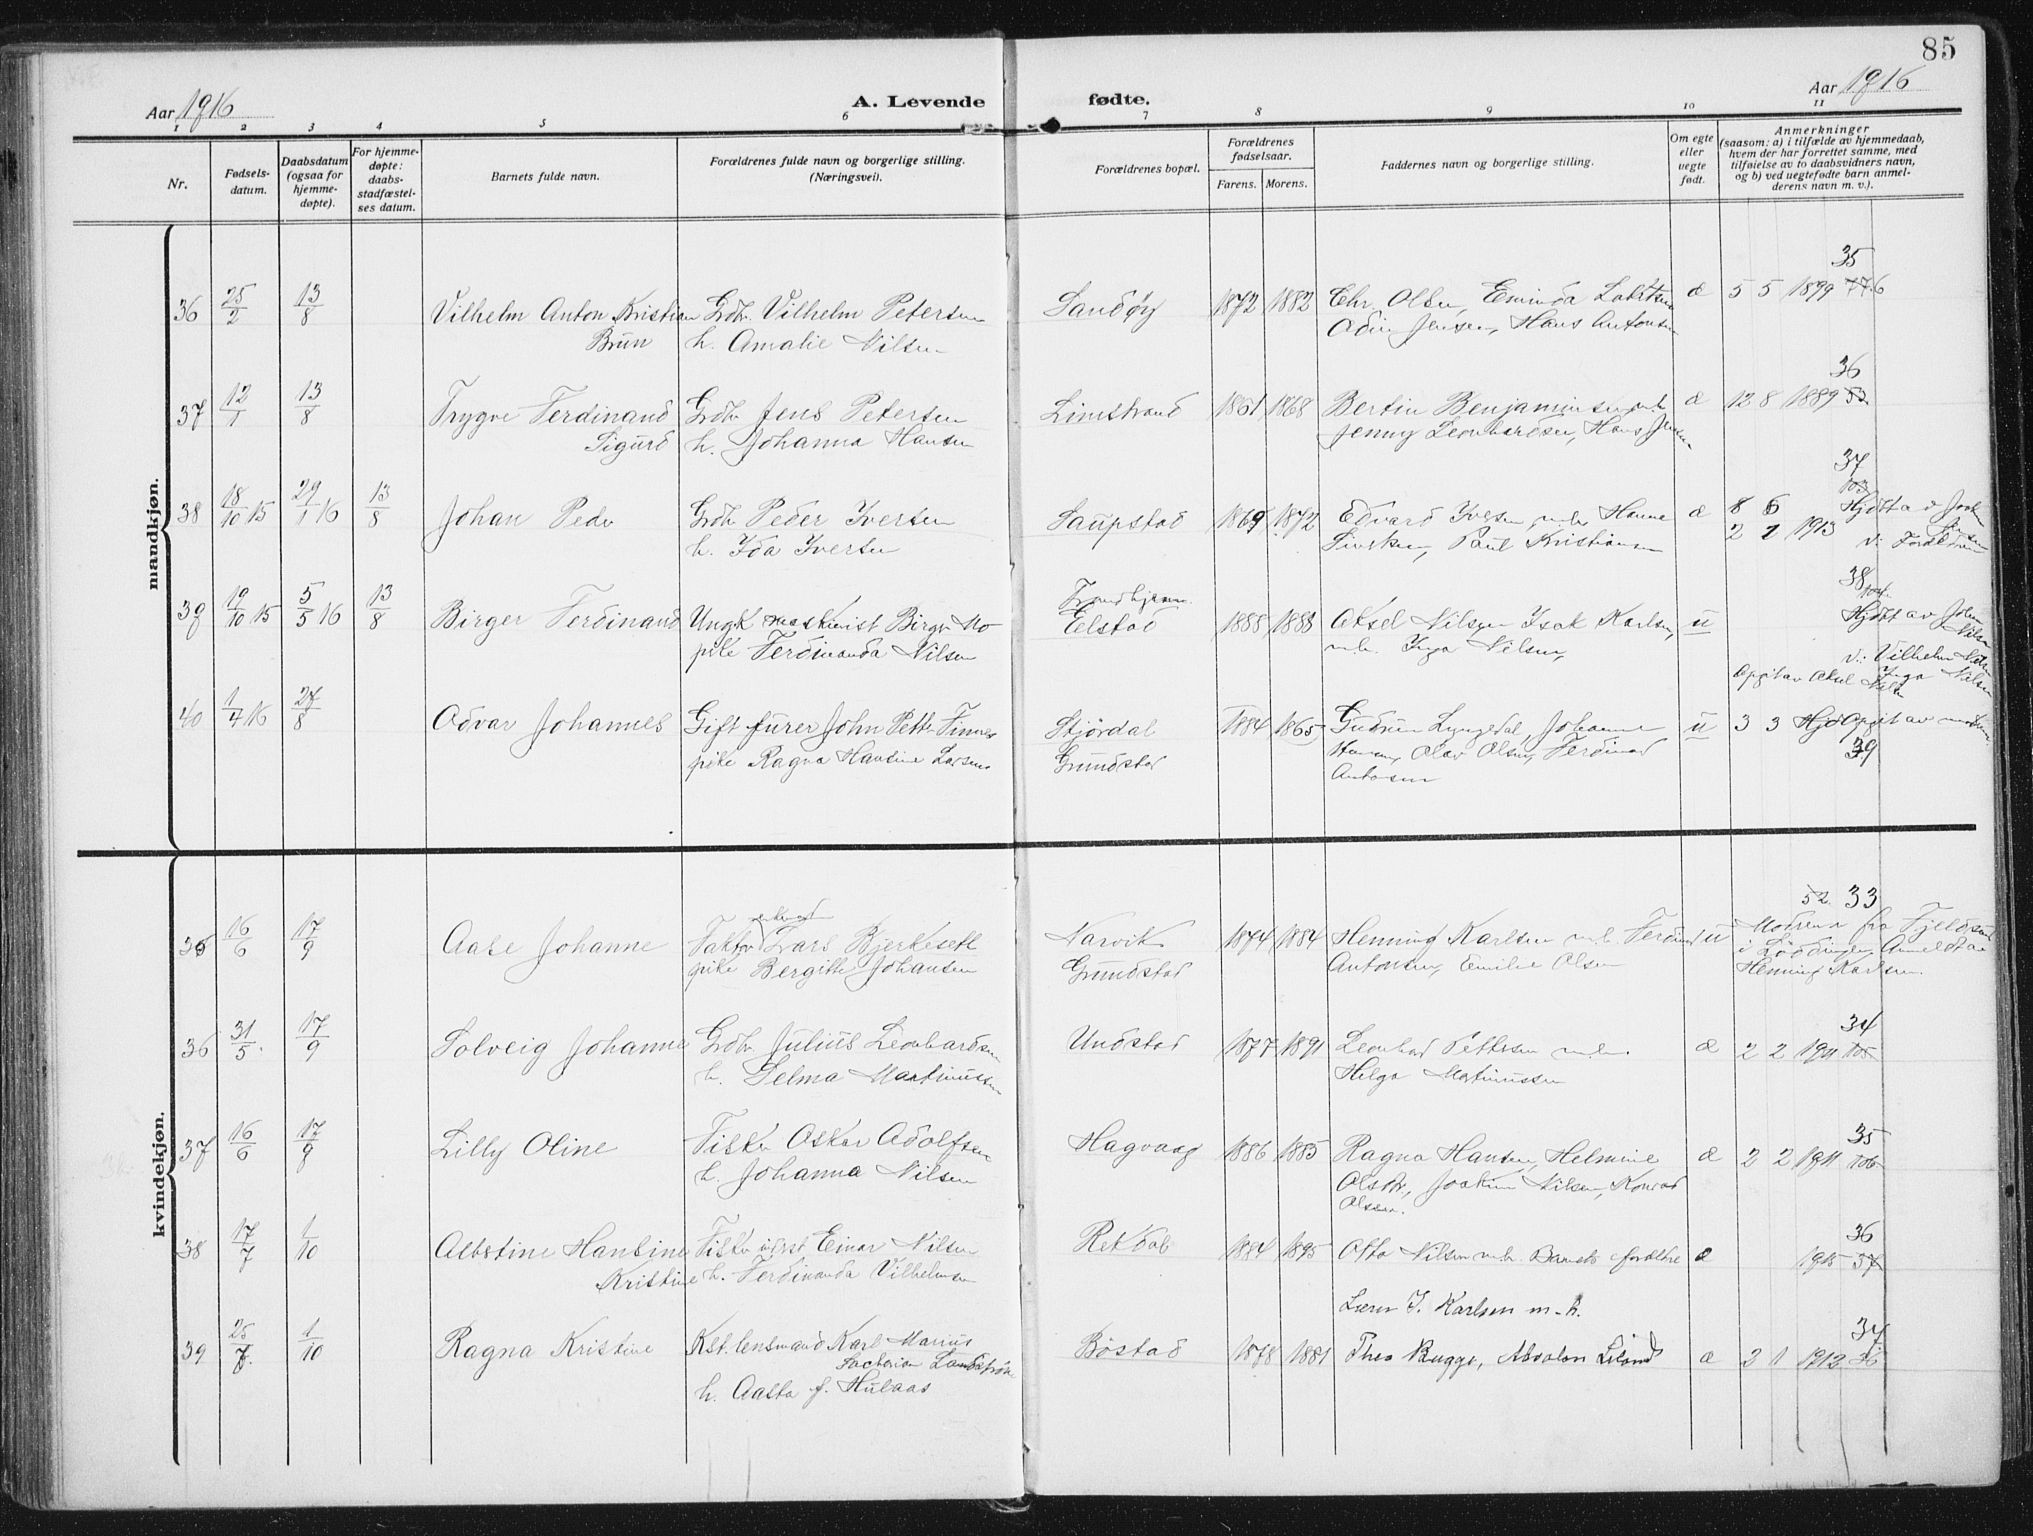 85
Aar 1916
A. Levende fødte.
Aar 1916
1 2 3 4 5 6 7 8 9 10 11
Nr.
Fødsels-
datum.
Daabsdatum
(ogsaa for
hjemme-
døpte).
For hjemme-
døpte:
daabs-
stadfæstel-
ses datum.
Barnets fulde navn.
Forældrenes fulde navn og borgerlige stilling.
(Næringsvei).
Forældrenes bopæl.
Forældrenes
fødselsaar.
Farens. Morens.
Faddernes navn og borgerlige stilling.
Om egte
eller
uegte
født.
Anmerkninger
(saasom: a) i tilfælde av hjemmedaab,
hvem der har forrettet samme, med
tilføielse av to daabsvidners navn,
og b) ved uegtefødte barn anmel-
derens navn m. v.).
mandkjøn.
35
36 25/2 13/8 Vilhelm Anton Kristian Grdbr Vilhelm Petersen Sandøy 1872 1882 Chr. Olsen, Esminda æ 5 5 1899 776
Brun h. Amalie Nilsen Odin Jensen, Hans Antonsen
36
37 12/1 13/8 Trygve Ferdinand Grdbr Jens Petersen Limstrand 1861 1868 Bertin Benjaminsen m.h. æ 12 8 1889 52
Sigurd h. Johanna Hansen Jenny Leonhardsen, Hans Jensen
37
103
38 18/10 15 29/1 16 13/8 Johan Peder Grdbr Peder Iversen Saupstad 1869 1872 Edvard Iversen m.h. Hanne æ 8 6 Hjdøbt av
h. Ida Iversen Paul Kristiansen 2 2 1913 v: Foreldrene
38
104
39 19/10 15 5/5 16 13/8 Birger Ferdinand Ungk maskinist Birger Mo Trondhjem 1888 1888 Aksel Nilsen Isak Karlsen, u Hjdøbt av Johan Nilsen
pike Ferdinanda Nilsen Elstad m.h. Inga Nilsen, v: Vilhelm Nilsen
Inga Nilsen
Opgit av Aksel Nilsen
40 1/4 16 27/8 Odvar Johannes Gift furer John Petter Finnes Stjördal 1884 1865 Gudrun Lyngedal, Johanne u 3 3 Hjd Opgit av moderen
pike Ragna Hansine Larsen Grundstad Hansen, Olav Olsen, Ferdinand 39
Antonsen
kvindekjøn.
52 33
35 16/6 17/9 Aase Johanne Faktor Lars Bjerkesett Narvik 1874 1884 Henning Karlsen m.h. Ferdinand u Moderen fra Fjeldsund
pike Bergitte Johansen Grundstad Antonsen, Emilie Olsen i Lödingen, Anmeldt av
Henning Karlsen.
34
36 31/5 17/9 Solveig Johanne Grdbr Julius Leonhardsen Undstad 1877 1891 Leonhard Pettersen m.h. æ 2 2 1911 105
h. Selma Martinussen Helga Martinussen
35
37 16/6 17/9 Lilly Oline Fisker Oskar Adolfsen Hagvaag 1886 1885 Ragna Hansen, Helmine æ 2 2 1911 106
h. Johanna Nilsen Olsen, Joakim Nilsen, Konrad
Olsen.
36
38 17/7 1/10 Albertine Hansine Fisker Einar Nilsen Rekdal 1884 1895 Otto Nilsen m.h. Barnets foreldre æ 1915 37
Kristine h. Ferdinanda Vilhelmsen
Lærer J. Karlsen m.h.
37
39 25/7 1/10 Ragna Kristine Kst. lensmand Karl Marius Böstad 1878 1881 Thea Bugge, Absalon æ 2 1 1912 36
h. Aasta f. Hulaas